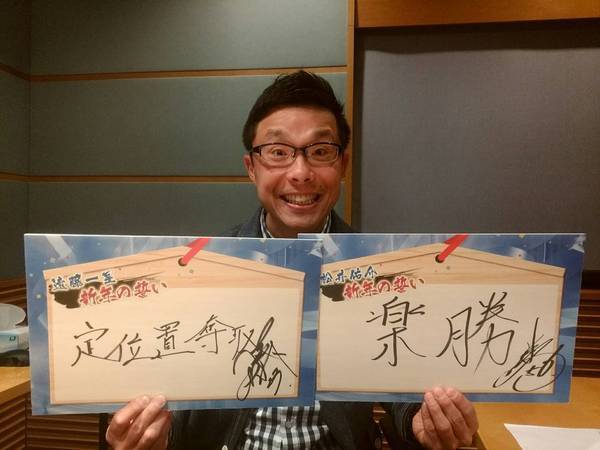 遠藤一星
新年の誓い
定位置奪取
松井佑介
新年の誓い
楽勝